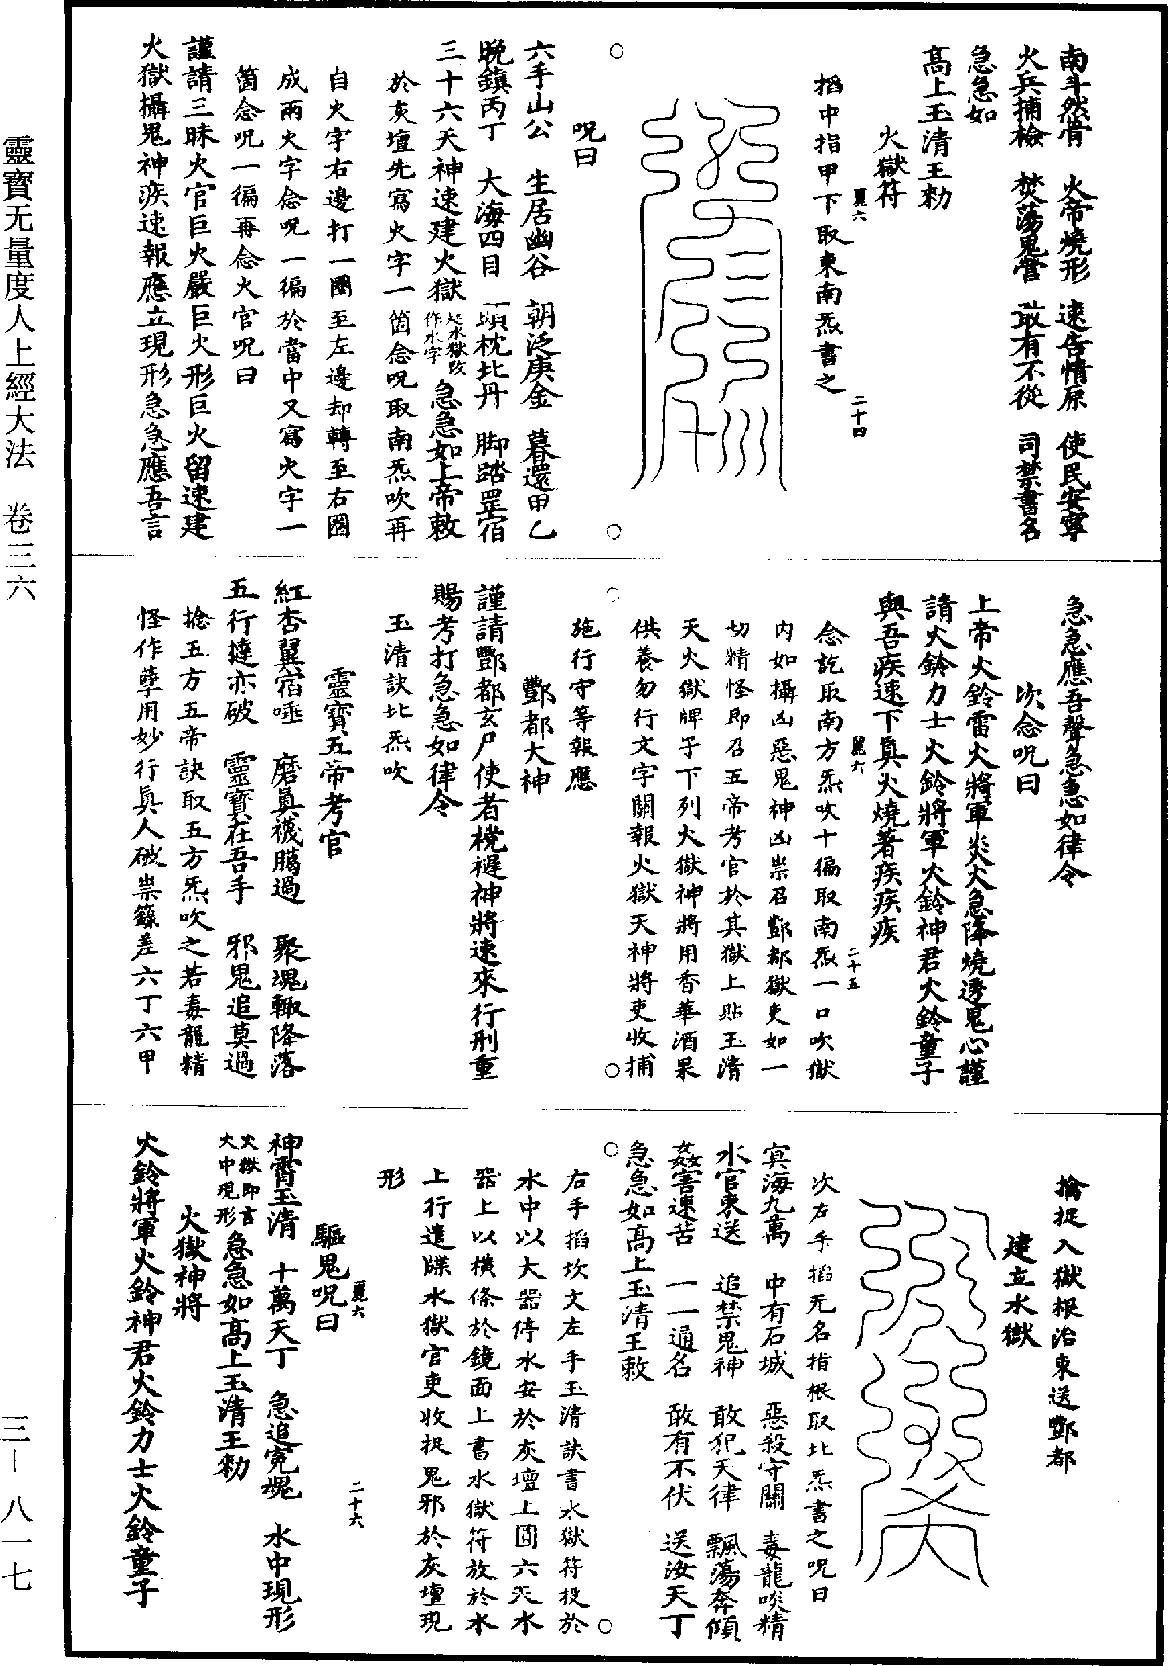 南斗然骨　火帝燒形　速告情原　使民安寧
火兵捕檢　焚蕩鬼營　敢有不從　司禁書名
急急如
高上玉清王勑
火獄符
搯中指甲下取東南炁書之
呪曰
六手山公　生居幽谷　朝泛庚金　暮還甲乙
晚鎮丙丁　大海四目　頭枕北丹　脚踏罡宿
三十六天神速建火獄　急急如上帝敕
於灰壇先寫火字一箇念呪取南炁吹再
自火字右邊打一圈至左邊却轉至右圈
成兩火字念呪一徧於當中又寫火字一
箇念呪一徧再念火官呪曰
謹請三昧火官巨火嚴巨火形巨火留速建
火獄攝鬼神疾速報應立現形急急應吾言
急急應吾聲急急如律令
次念呪曰
上帝火鈴雷火將軍炎火急降燒透鬼心謹
請火鈴力士火鈴將軍火鈴神君火鈴童子
與吾疾速下真火燒著疾疾疾
念訖取南方炁吹十徧取南炁一口吹獄
內如攝凶惡鬼神凶祟召酆都獄吏如一
切精怪即召五帝考官於其獄上貼玉清
天火獄牌子下列火獄神將用香華酒果
供養勿行文字關報火獄天神將吏收捕
施行守等報應
酆都大神
謹請酆都玄尸使者神將速來行刑重
賜考打急急如律令
玉清訣北炁吹
靈寶五帝考官
紅杏翼宿唾　磨真襪臈過　聚塊輙降落
五行撻亦破　靈寶在吾手　邪鬼追莫過
捻五方五帝訣取五方炁吹之若毒龍精
怪作孽用妙行真人破祟籙差六丁六甲
擒捉入獄根治束送酆都
建立水獄
次左手搯无名指根取北炁書之呪曰
寞海九萬　中有石城　惡殺守關　毒龍啖精
水官束送　追禁鬼神　敢犯天律　飄蕩奔傾
姦害速苦　一一通名　敢有不伏　送汝天丁
急急如高上玉清王敕
右手搯坎文左手玉清訣書水獄符投於
水中以大器停水安於灰壇上圓六天水
器上以橫條於鏡面上書水獄符放於水
上行遣牒水獄官吏收捉鬼邪於灰壇現
形
驅鬼呪曰
神霄玉清　十萬天丁　急追寃魂　水中現形
火獄即言火中現形急急如高上玉清王勑
火獄神將
火鈴將軍火鈴神君火鈴力士火鈴童子
靈寶无量度人上經大法　卷三六
三—八一七
二十四
二十五
二十六